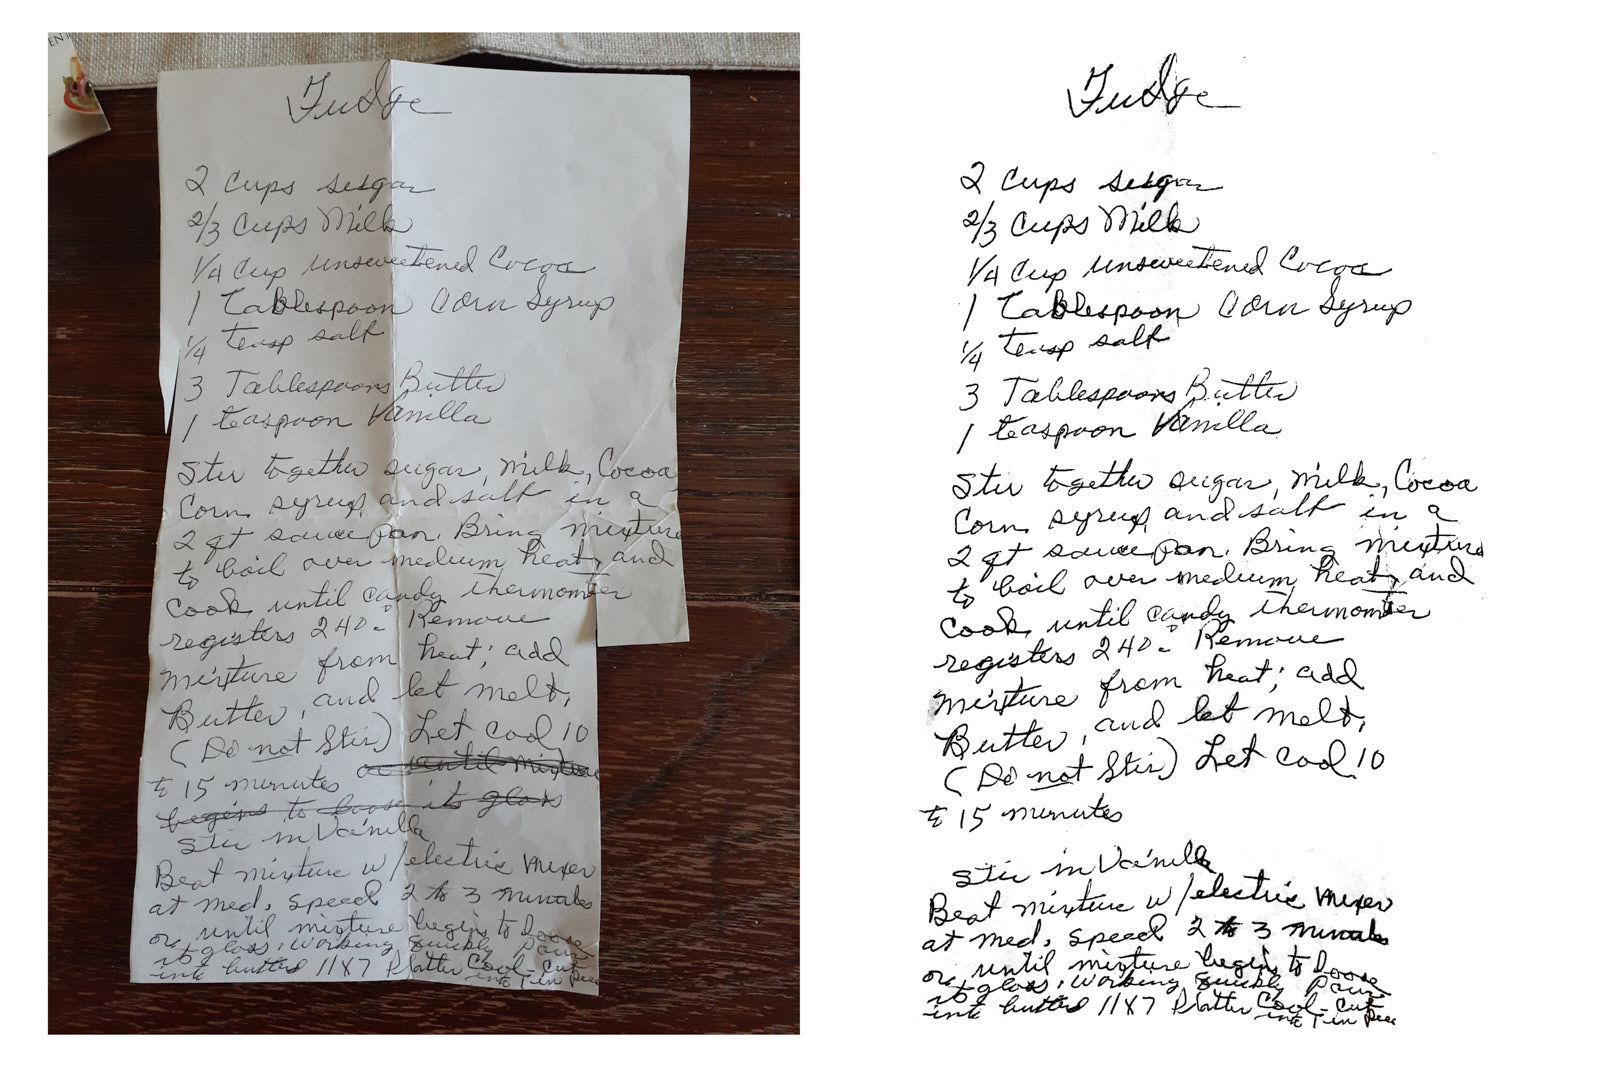 Fudge
2 Cups sugar
2/3 Cups Milk
1/4 Cup unsweetened Cocoa
1 Tablespoon Corn Syrup
1/4 teasp salt
3 Tablespoons Butter
1 teaspoon Vanilla
Stir together sugar, Milk, Cocoa
Corn syrup, and salt in a
2 qt sauce pan. Bring mixture
to boil over medium heat, and
Cook until candy thermomter
registers 240° Remove
mixture from heat; add
Butter, and let melt,
(Do not Stir) Let cool 10
or until mixture
to 15 minutes
begins to loose its gloss
Stir in Vanilla
Beat mixture w/electric mixer
at med, speed 2 to 3 minutes
or until mixture begins to loose
its gloss, working quickly Pour
into butter 11x7 Platter Cool - Cut
into 1 in
Fudge
2 Cups sugar
2/3 Cups Milk
1/4 Cup unsweetened Cocoa
1 Tablespoon Corn Syrup
1/4 teasp salt
3 Tablespoons Butter
1 teaspoon Vanilla
Stir together sugar, Milk, Cocoa
Corn syrup, and salt in a
2 qt sauce pan. Bring mixture
to boil over medium heat, and
Cook until candy thermomter
registers 240° Remove
mixture from heat; add
Butter, and let melt,
(Do not Stir) Let cool 10
to 15 minutes
Stir in Vanilla
Beat mixture w/electric mixer
at med, speed 2 to 3 minutes
or until mixture begins to loose
its gloss, working quickly Pour
into butter 11x7 Platter Cool - Cut
into 1 in